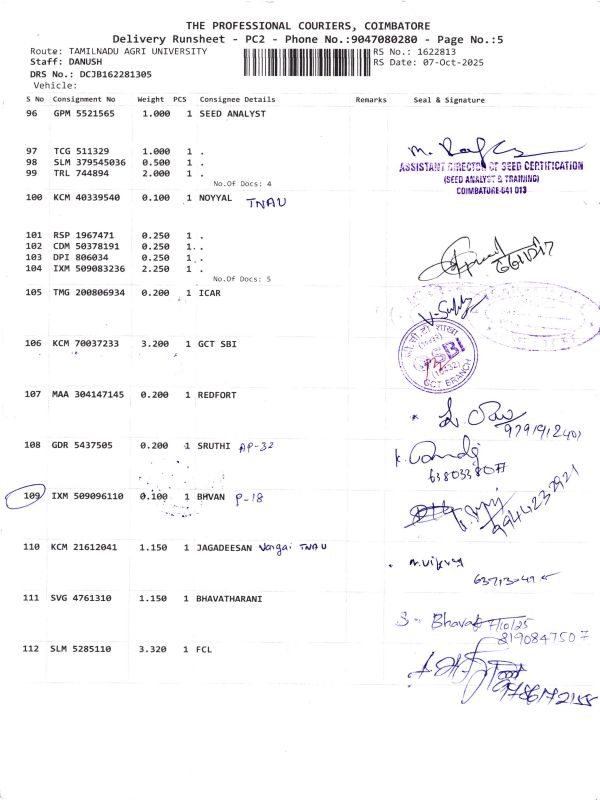 THE PROFESSIONAL COURIERS, COIMBATORE
Delivery Runsheet - PC2 - Phone No.:9047080280 - Page No.:5
Route: TAMILNADU AGRI UNIVERSITY RS No.: 1622813
Staff: DANUSH RS Date: 07-Oct-2025
DRS No.: DCJB162281305
Vehicle:
S No Consignment No Weight PCS Consignee Details Remarks Seal & Signature
96 GPM 5521565 1.000 1 SEED ANALYST
97 TCG 511329 1.000 1 .
98 SLM 379545036 0.500 1 .
99 TRL 744894 2.000 1 .
ASSISTANT DIRECTOR OF SEED CERTIFICATION
(SEED ANALYST & TRAINING)
COIMBATORE-641 013
No.Of Docs: 4
100 KCM 40339540 0.100 1 NOYYAL TNAU
101 RSP 1967471 0.250 1 .
102 CDM 50378191 0.250 1 .
103 DPI 806034 0.250 1 .
104 IXM 509083236 2.250 1 .
No.Of Docs: 5
105 TMG 200806934 0.200 1 ICAR
106 KCM 70037233 3.200 1 GCT SBI
SBI
GCT BRANCH
107 MAA 304147145 0.200 1 REDFORT
9791912401
108 GDR 5437505 0.200 1 SRUTHI AP-32
109 IXM 509096110 0.100 1 BHVAN P-18
9944232921
110 KCM 21612041 1.150 1 JAGADEESAN Vaigai TNAU
111 SVG 4761310 1.150 1 BHAVATHARANI
S. Bhava 7/10/25
8190847507
112 SLM 5285110 3.320 1 FCL
9786172158